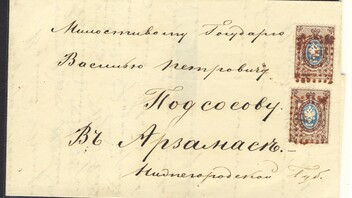 Милостивому Государю
Василью Петровичу
Подсосову.
Въ Арзамасъ.
Нижегородской Губ.